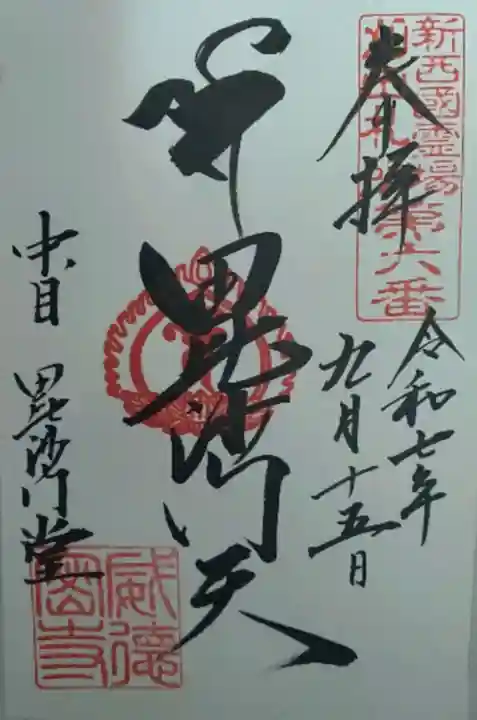 新西國霊場
札所第六番
奉拝
令和七年
九月十五日
毘沙門天
毘沙門堂
威德
密寺